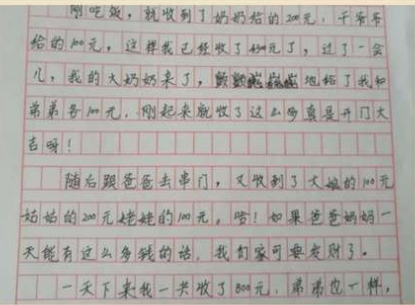 刚吃饭，就收到了奶奶给的200元，干爷爷
给的100元，这样我已经收了400元了，过了一会
儿，我的大奶奶来了，颤颤巍巍地给了我和
弟弟各100元，刚起来就收了这么多真是开门大
吉呀！
随后跟爸爸去串门，又收到了大娘的100元
姑姑的200元姥姥的100元，哈！如果爸爸妈妈一
天能有这么多钱的话，我们家可要发财了。
一天下来我一共收了800元，弟弟也一样，